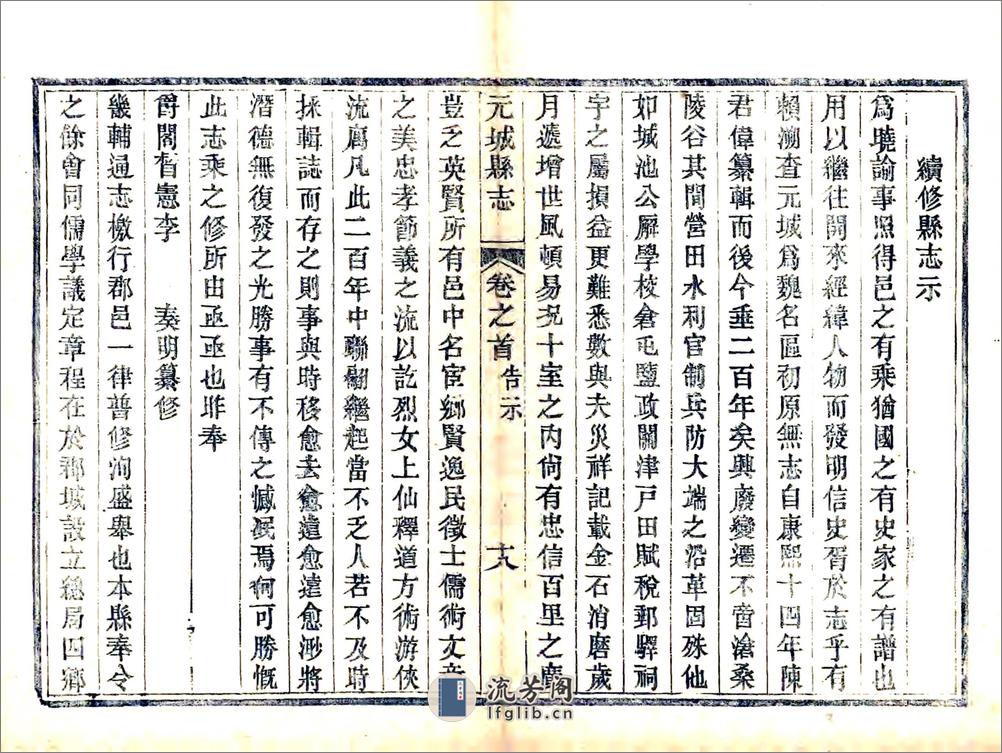 續修縣志示
爲曉諭事照得邑之有乘猶國之有史家之有譜也
用以繼往開來經緯人物而發明信史胥於志乎有
賴溯查元城爲魏名區初原無志自康熙十四年陳
君偉纂輯而後今垂二百年矣興廢變遷不啻滄桑
陵谷其間營田水利官制兵防大端之沿革固殊他
如城池公廨學校倉屯鹽政關津戸田賦稅郵驛祠
宇之屬損益更難悉數與夫災祥記載金石消磨歲
月遞增世風頓易况十室之內尙有忠信百里之廣
元城縣志 卷之首 告示 十八
豈乏英賢所有邑中名宦鄉賢逸民徵士儒術文章
之美忠孝節義之流以訖烈女上仙釋道方術游俠
流寓凡此二百年中聯翩繼起當不乏人若不及時
採輯誌而存之則事與時移愈去愈遠愈遠愈渺將
潛德無復發之光勝事有不傳之憾泯焉何可勝慨
此志乘之修所由亟亟也昨奉
爵閣督憲李 奏明纂修
畿輔通志檄行郡邑一律普修洵盛舉也本縣奉令
之餘會同儒學議定章程在於郡城設立總局四鄉
流芳阁
lfglib.cn